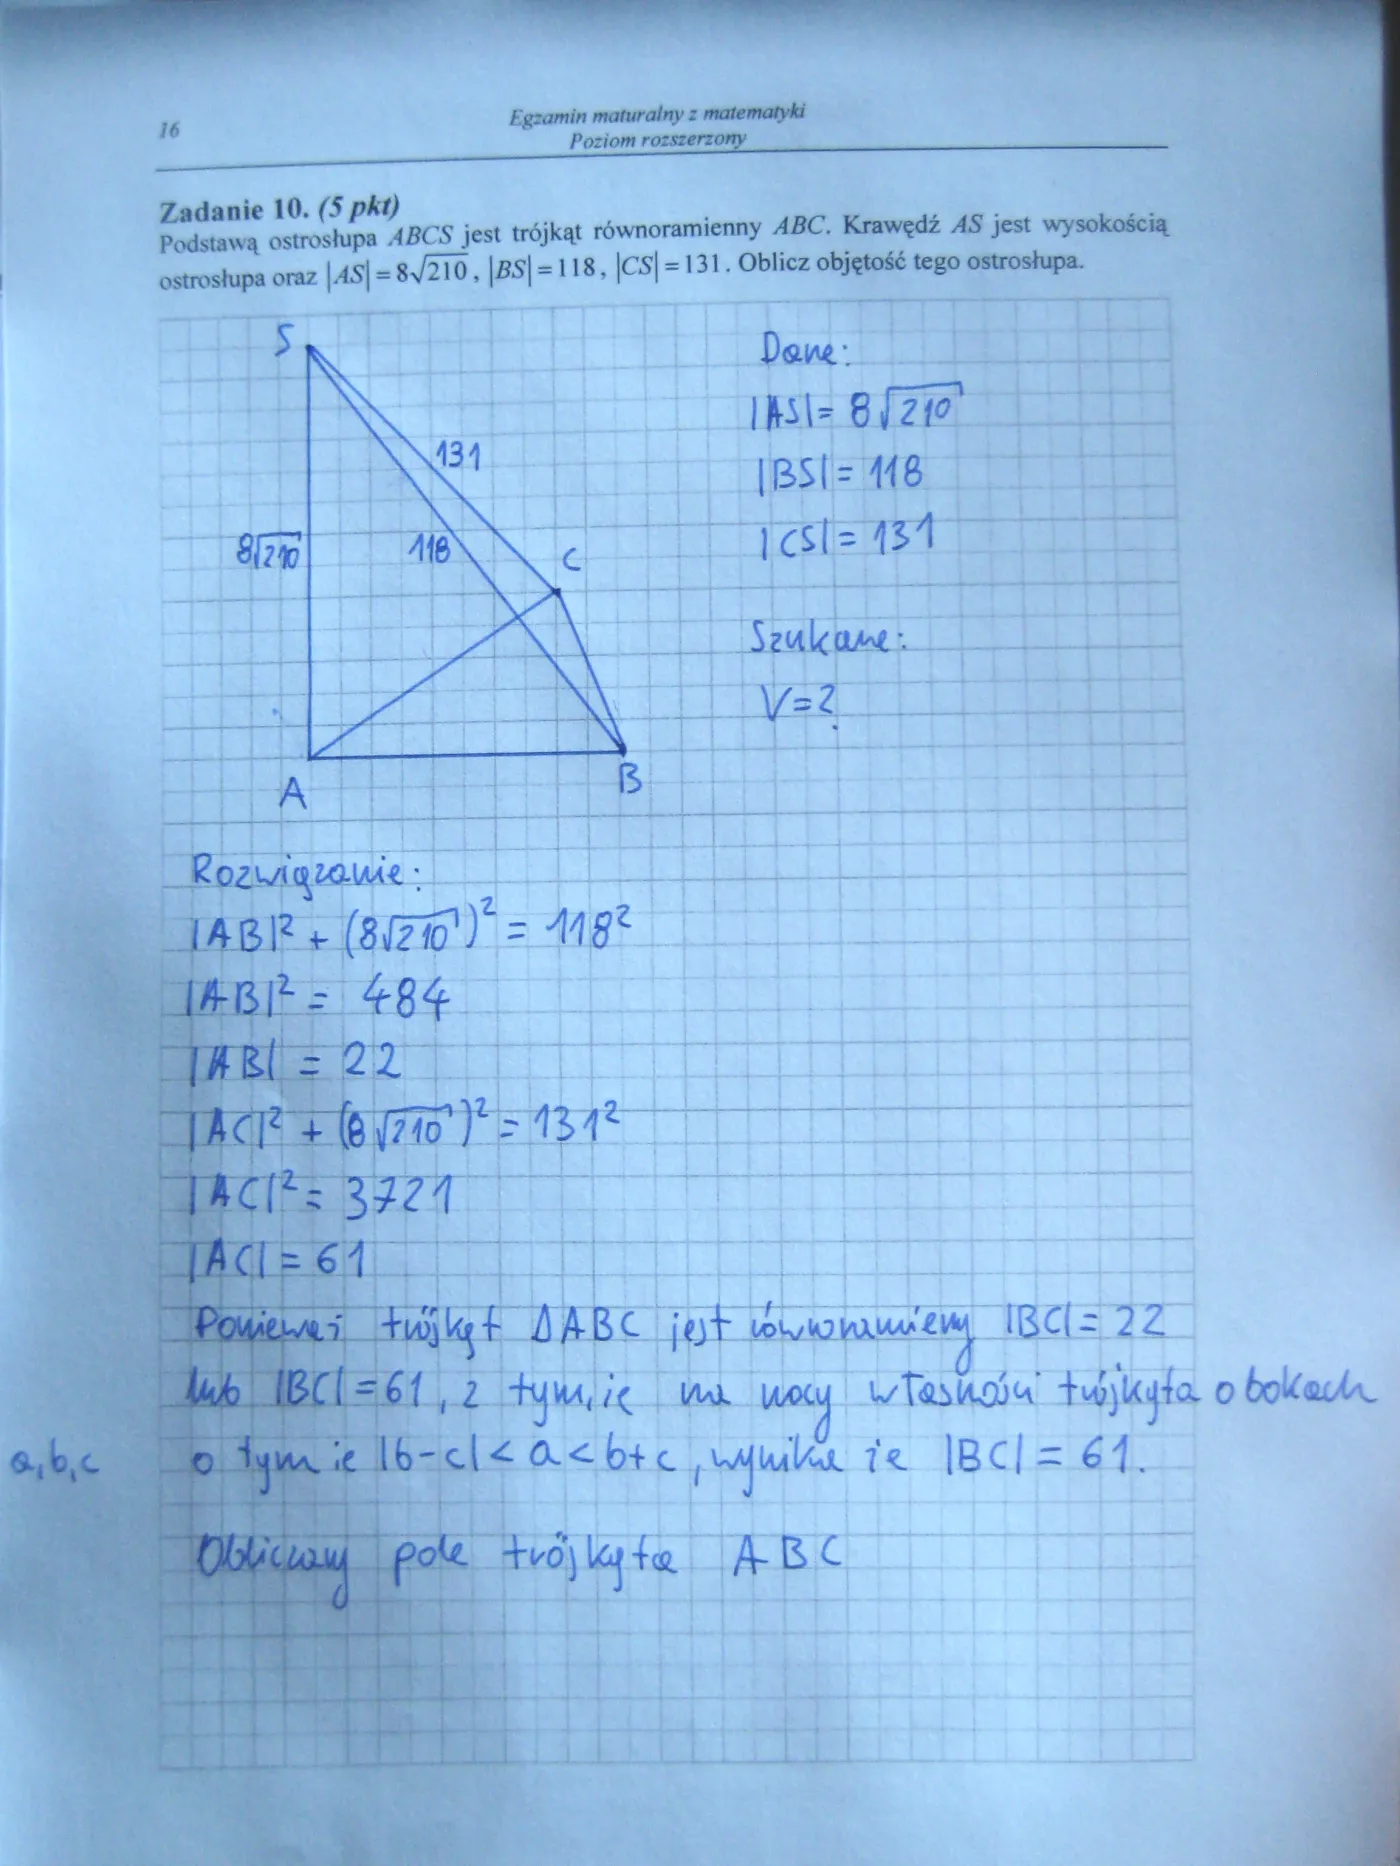 16
Egzamin maturalny z matematyki
Poziom rozszerzony
Zadanie 10. (5 pkt)
Podstawą ostrosłupa ABCS jest trójkąt równoramienny ABC. Krawędź AS jest wysokością
ostrosłupa oraz |AS| = 8√210, |BS| = 118, |CS| = 131. Oblicz objętość tego ostrosłupa.
S
131
8√210
118
C
A
B
Dane:
|AS| = 8√210
|BS| = 118
|CS| = 131
Szukane:
V=?
Rozwiązanie:
|AB|² + (8√210)² = 118²
|AB|² = 484
|AB| = 22
|AC|² + (8√210)² = 131²
|AC|² = 3721
|AC| = 61
Ponieważ trójkąt ΔABC jest równoramienny |BC| = 22
lub |BC| = 61, z tym, że na mocy własności trójkąta o bokach
a, b, c o tym że |b-c| < a < b+c, wynika że |BC| = 61.
Obliczamy pole trójkąta ABC